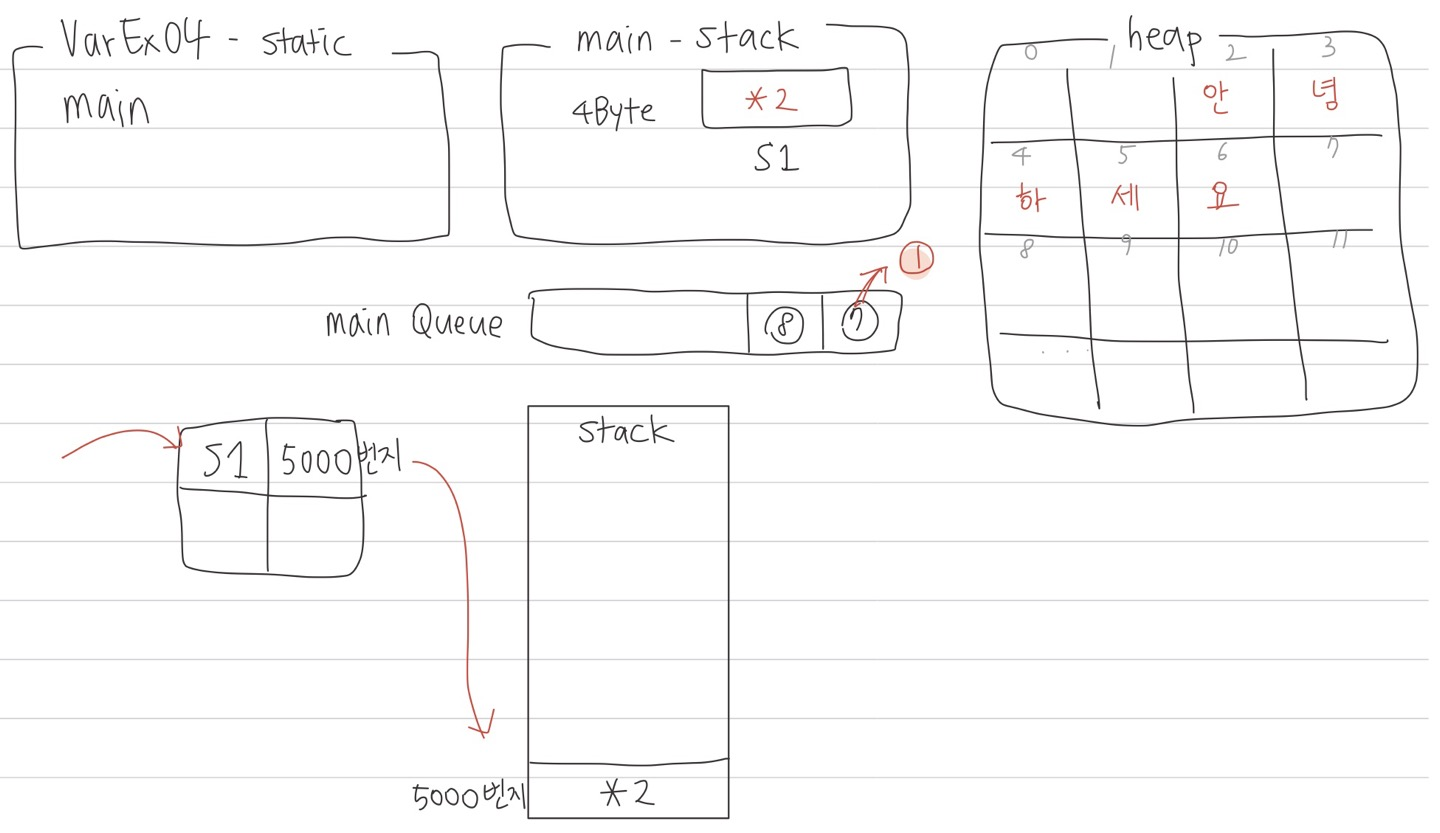 VarEx04 - static
main
main - stack
4Byte
*2
S1
heap
0 1 2 3
안 녕
4 5 6 7
하 세 요
8 9 10 11
. . .
①
main Queue
⑧ ⑦
S1 5000번지
stack
5000번지 *2